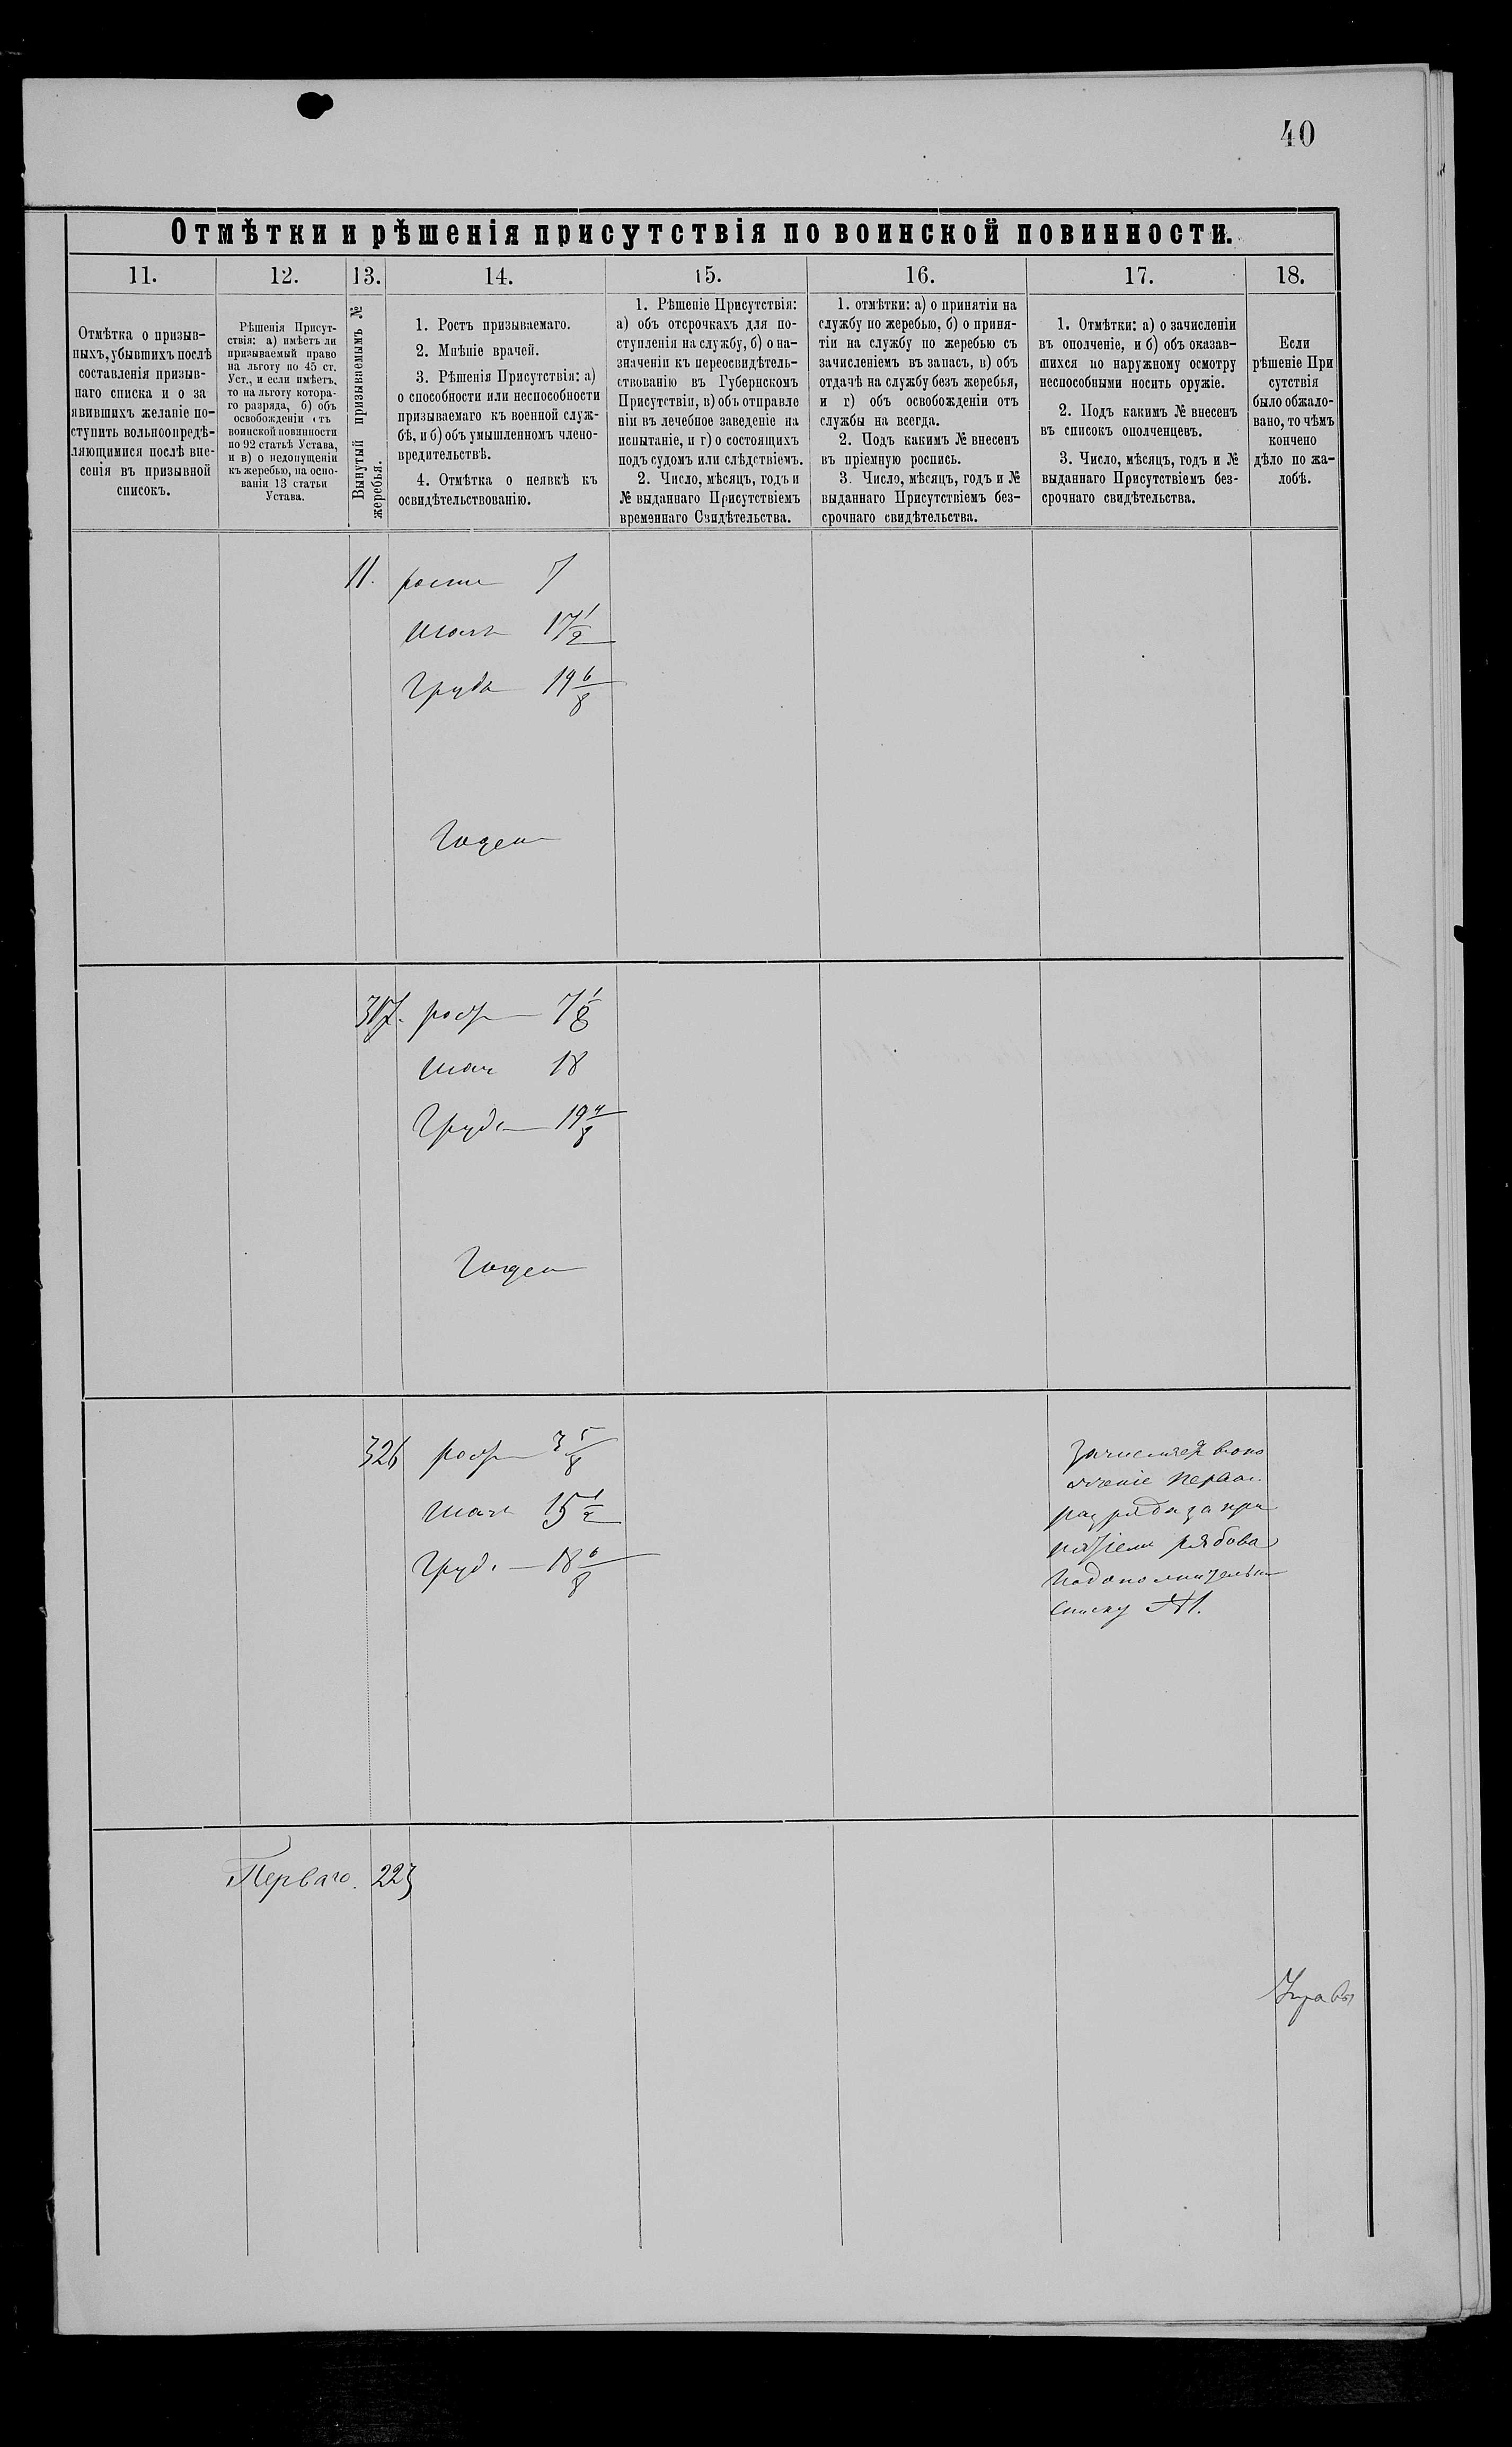 40
Отмѣтки и рѣшенія присутствія по воинской повинности.
11. 12. 13. 14. 15. 16. 17. 18.
Отмѣтка о призыв-
ныхъ, убывшихъ послѣ
составленія призыв-
наго списка и о за
явившихъ желаніе по-
ступить вольноопредѣ-
ляющимися послѣ вне-
сенія въ призывной
списокъ.
Рѣшенія Присут-
ствія: а) имѣетъ ли
призываемый право
на льготу по 45 ст.
Уст., и если имѣетъ,
то на льготу котора-
го разряда, б) объ
освобожденіи отъ
воинской повинности
по 92 статьѣ Устава,
и в) о недопущеніи
къ жеребью, на осно-
ваніи 13 статьи
Устава.
Вынутый призываемымъ №
жеребья.
1. Ростъ призываемаго.
2. Мнѣніе врачей.
3. Рѣшенія Присутствія: а)
о способности или неспособности
призываемаго къ военной служ-
бѣ, и б) объ умышленномъ члено-
вредительствѣ.
4. Отмѣтка о неявкѣ къ
освидѣтельствованію.
1. Рѣшеніе Присутствія:
а) объ отсрочкахъ для по-
ступленія на службу, б) о на-
значеніи къ переосвидѣтель-
ствованію въ Губернскомъ
Присутствіи, в) объ отправле
ніи въ лечебное заведеніе на
испытаніе, и г) о состоящихъ
подъ судомъ или слѣдствіемъ.
2. Число, мѣсяцъ, годъ и
№ выданнаго Присутствіемъ
временнаго Свидѣтельства.
1. отмѣтки: а) о принятіи на
службу по жеребью, б) о приня-
тіи на службу по жеребью съ
зачисленіемъ въ запасъ, в) объ
отдачѣ на службу безъ жеребья,
и г) объ освобожденіи отъ
службы на всегда.
2. Подъ какимъ № внесенъ
въ пріемную роспись.
3. Число, мѣсяцъ, годъ и №
выданнаго Присутствіемъ без-
срочнаго свидѣтельства.
1. Отмѣтки: а) о зачисленіи
въ ополченіе, и б) объ оказав-
шихся по наружному осмотру
неспособными носить оружіе.
2. Подъ какимъ № внесенъ
въ списокъ ополченцевъ.
3. Число, мѣсяцъ, годъ и №
выданнаго Присутствіемъ без-
срочнаго свидѣтельства.
Если
рѣшеніе При
сутствія
было обжало-
вано, то чѣмъ
кончено
дѣло по жа-
лобѣ.
11. ростъ 7
17 1/2
Грудь 19 6/8
Годен
307. рост 7 1/8
18
Груд 19 4/8
Годен
326 рост 3 5/8
15 1/2
Груд. 18 6/8
разряда за
списку №1.
Перваго. 223